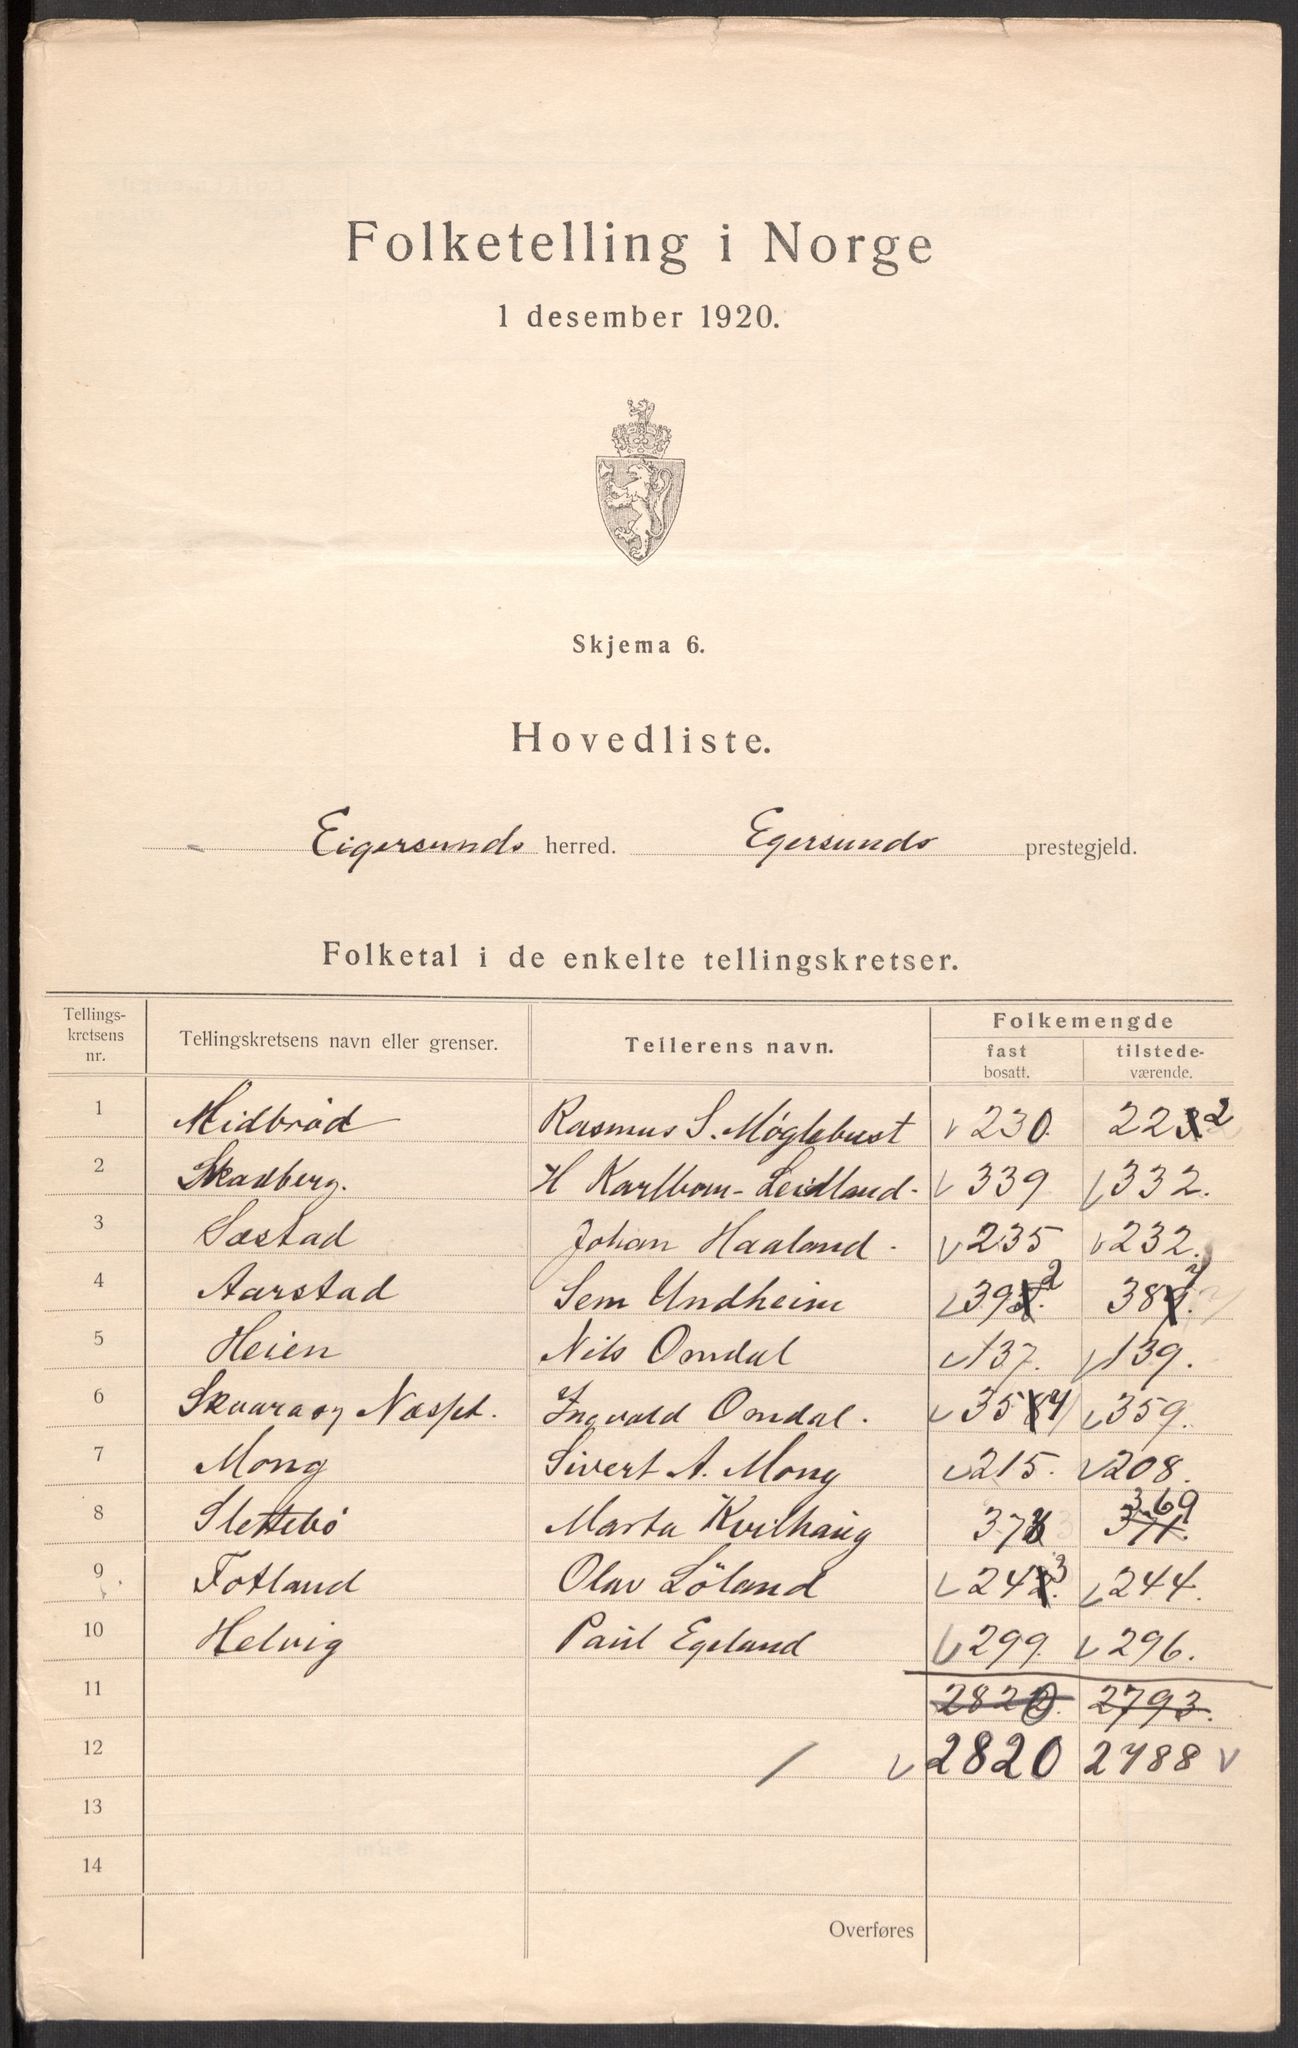 Folketelling i Norge
1 desember 1920.
Skjema 6.
Hovedliste.
Eigersunds herred. Egersunds prestegjeld.
Folketal i de enkelte tellingskretser.
Tellings-
kretsens
nr.
Tellingskretsens navn eller grenser.
Tellerens navn.
Folkemengde
fast
bosatt.
tilstede-
værende.
1 Midbröd Rasmus S. Møglebust 230. 222
2 Skadberg. H Karlbom-Leidland. 339 332.
3 Sæstad Johan Haaland. 235 232.
4 Aarstad Sem Undheim 392 387
5 Heien Nils Omdal 137. 139.
6 Skvara og Ingvald Omdal. 357 359.
7 Mong Sivert A. Mong 215. 208.
8 Slettebö Marta Kvilhaug 373 371. 369
9 Fotland Olav Löland 243 244.
10 Helvig Paul Egeland 299. 296.
11 2822. 2793.
12 2820 2788
13
14
Overføres